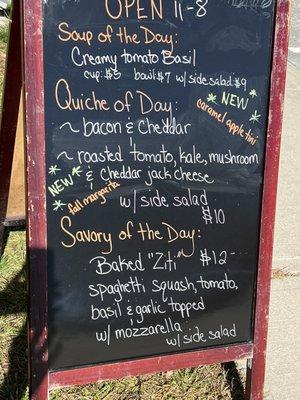 OPEN 11-8
Soup of the Day:
Creamy tomato Basil
cup: $5 bowl: $7 w/ side salad $9
Quiche of Day:
*NEW*
caramel apple tini
~ bacon & Cheddar
~ roasted tomato, kale, mushroom
& Cheddar jack cheese
*NEW*
fall margarita
w/ side salad
$10
Savory of the Day:
Baked "Ziti" $12-
spaghetti squash, tomato,
basil & garlic topped
w/ mozzarella
w/ side salad